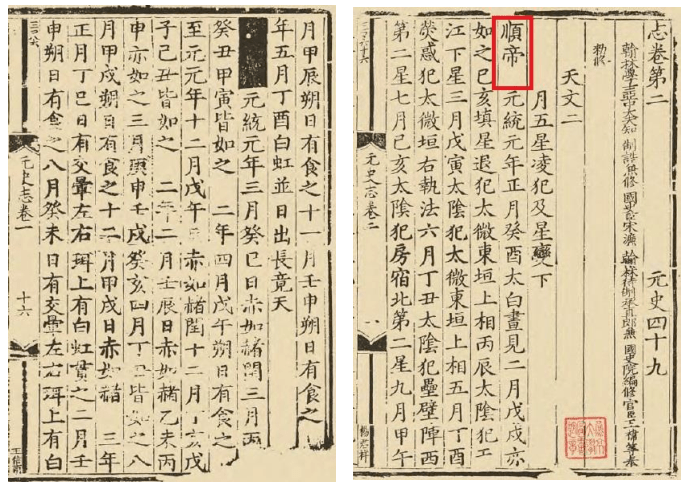 月甲辰朔日有食之十一月壬申朔日有食之
年五月丁酉白虹並日出長竟天
元統元年三月癸巳日赤如赭閏三月丙
癸丑甲寅皆如之 二年四月戊午朔日有食之
至元元年十二月戊午日赤如赭閏十二月丁亥戊
子己丑皆如之 二年二月壬辰日赤如赭乙未丙
申亦如之三月庚申壬戌癸亥四月丁丑皆如之八
月甲戌朔日有食之十二月甲戌日赤如赭 三年
正月丁巳日有交暈左右珥上有白虹貫之二月壬
申朔日有食之八月癸未日有交暈左右珥上有白
元史志卷一 十六
志卷第二 元史四十九
翰林學士亞中大夫知制誥兼修國史臣宋濂 翰林待制承直郎兼國史院編修官臣王禕等奉
勑修
天文二
月五星凌犯及星變下
順帝 元統元年正月癸酉太白晝見二月戊戌亦
如之己亥填星退犯太微東垣上相丙辰太陰犯天
江下星三月戊寅太陰犯太微東垣上相五月丁酉
熒惑犯太微垣右執法六月丁丑太陰犯壘壁陣西
第二星七月己亥太陰犯房宿北第二星九月甲午
元史志卷二 一